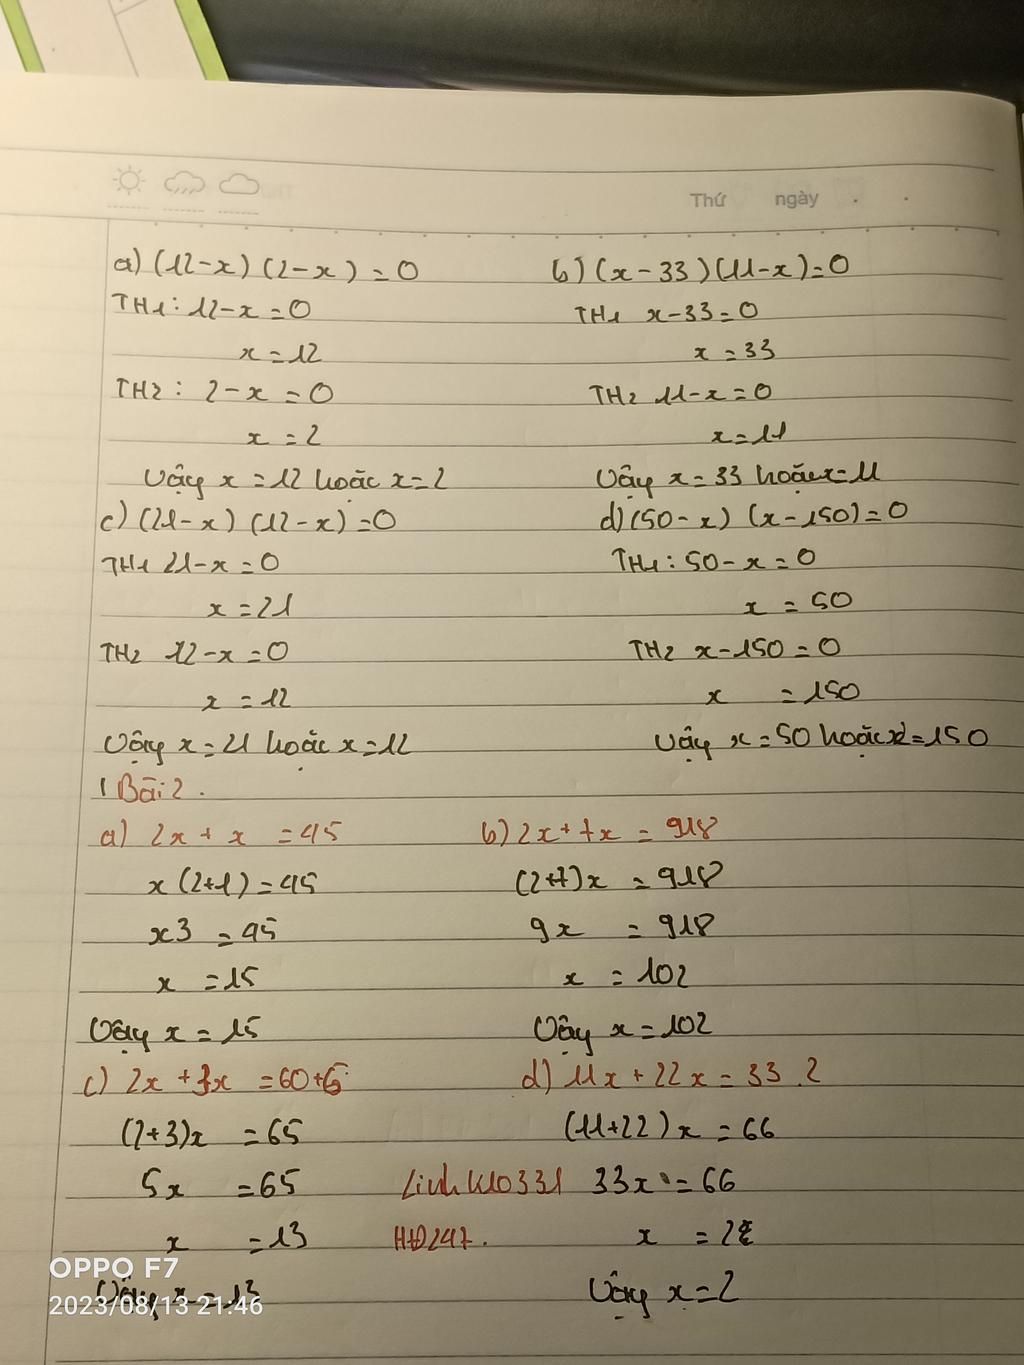 Thứ ngày
a) (12-x) (2-x) = 0
TH1: 12-x=0
x=12
TH2: 2-x=0
x=2
Vậy x=12 hoặc x=2
b) (x-33)(11-x)=0
TH1 x-33=0
x=33
TH2 11-x=0
x=11
Vậy x=33 hoặc x=11
c) (21-x) (12-x)=0
TH1 21-x=0
x=21
TH2 12-x=0
x=12
Vậy x=21 hoặc x=12
d) (50-x) (x-150)=0
TH1: 50-x=0
x=50
TH2 x-150=0
x=150
Vậy x=50 hoặc x=150
Bài 2.
a) 2x+x=45
x(2+1)=45
x3=45
x=15
Vậy x=15
b) 2x+7x=918
(2+7)x=918
9x=918
x=102
Vậy x=102
c) 2x+3x=60+5
(2+3)x=65
5x=65
x=13
Vậy x=13
d) 11x+22x=33.2
(11+22)x=66
33x=66
x=2
Vậy x=2
HĐ247.
OPPO F7
2023/08/13 21:46